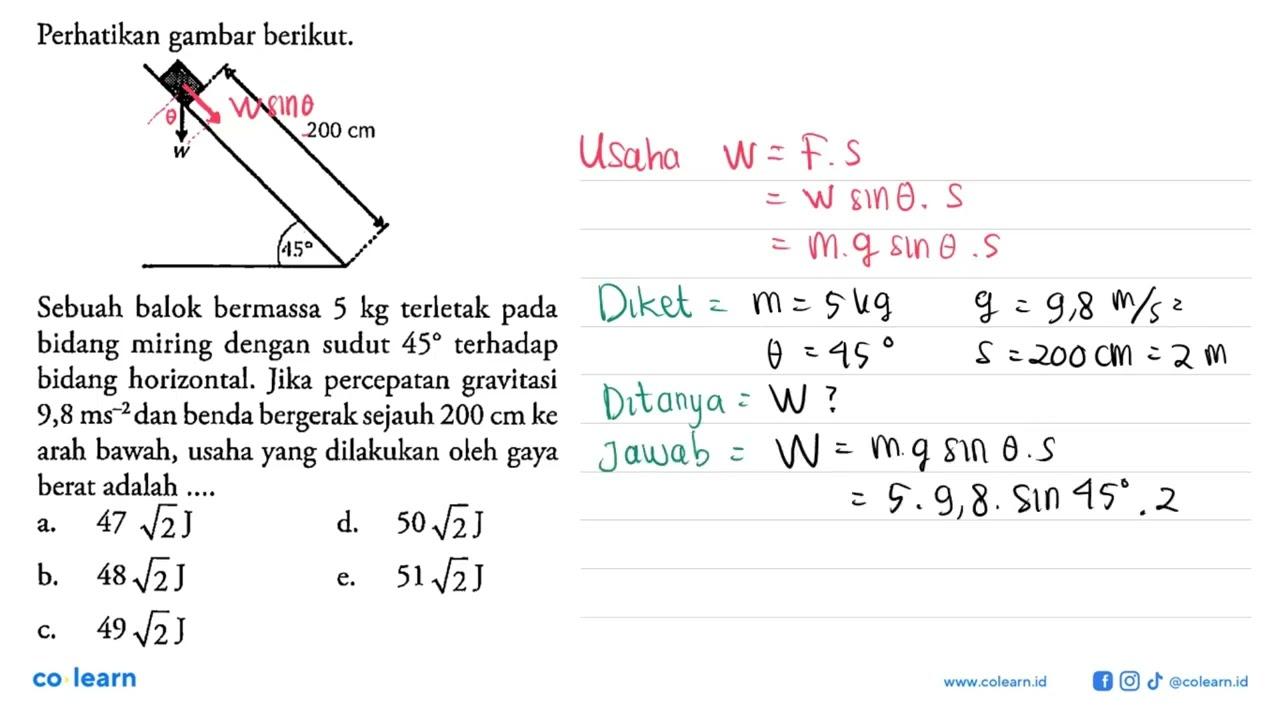 Perhatikan gambar berikut.
W sin θ
θ
200 cm
w
45°
Sebuah balok bermassa 5 kg terletak pada
bidang miring dengan sudut 45° terhadap
bidang horizontal. Jika percepatan gravitasi
9,8 ms⁻² dan benda bergerak sejauh 200 cm ke
arah bawah, usaha yang dilakukan oleh gaya
berat adalah ....
a. 47 √2 J
d. 50 √2 J
b. 48 √2 J
e. 51 √2 J
c. 49 √2 J
Usaha W = F . S
= W sin θ . S
= m . g sin θ . S
Diket = m = 5 kg g = 9,8 m/s²
θ = 45° S = 200 cm = 2 m
Ditanya = W ?
Jawab = W = m . g sin θ . S
= 5 . 9,8 . sin 45° . 2
co learn
www.colearn.id
@colearn.id